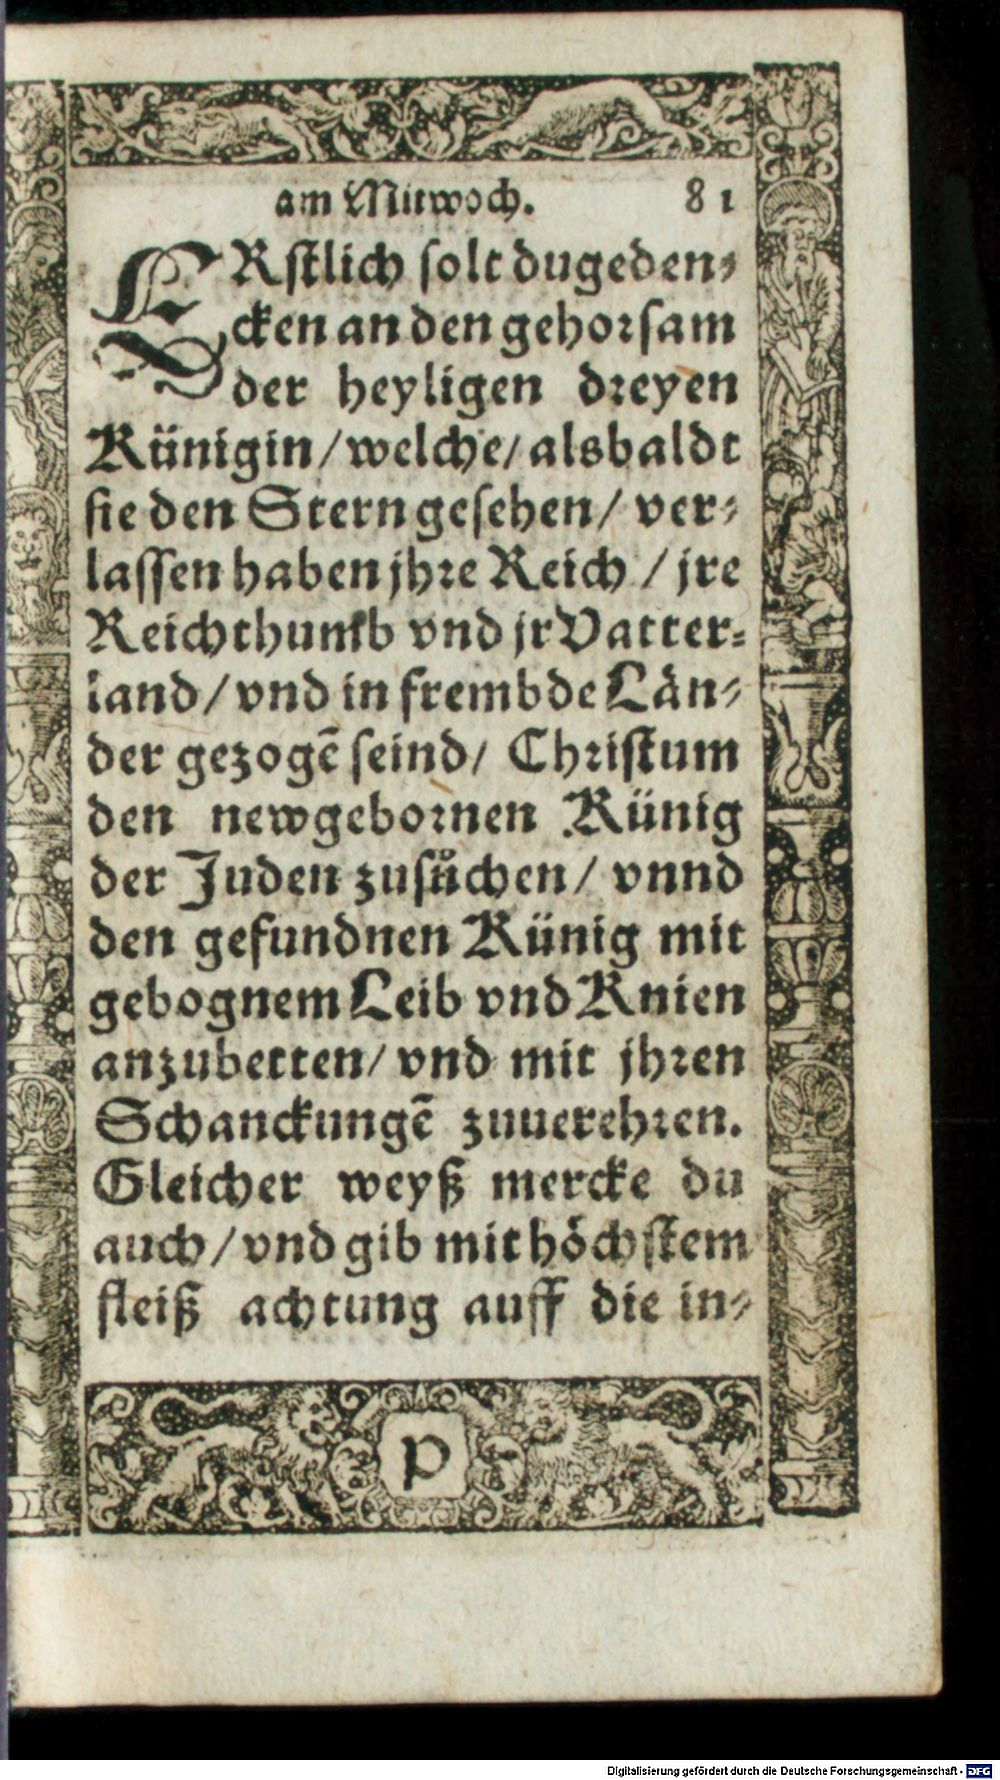 am Mitwoch. 81
ERstlich solt du geden⸗
cken an den gehorsam
der heyligen dreyen
Künigin / welche / alsbaldt
sie den Stern gesehen / ver⸗
lassen haben jhre Reich / jre
Reichthumb vnd jr Vatter⸗
land / vnd in frembde Län⸗
der gezogē seind / Christum
den newgebornen Künig
der Juden zusůchen / vnnd
den gefundnen Künig mit
gebognem Leib vnd Knien
anzubetten / vnd mit jhren
Schanckungē zuuerehren.
Gleicher weyß mercke du
auch / vnd gib mit höchstem
fleiß achtung auff die in⸗
p
Digitalisierung gefördert durch die Deutsche Forschungsgemeinschaft - DFG